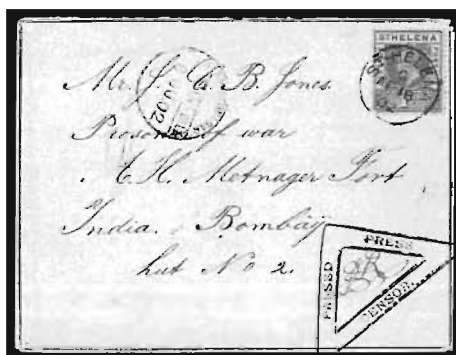 ST HELENA
ST HELENA
Mr. J. C. B. Jones
Prosoner of war
A. H. Metnager Fort
India. Bombay
hut No 2.
PRESS
PASSED
CENSOR.